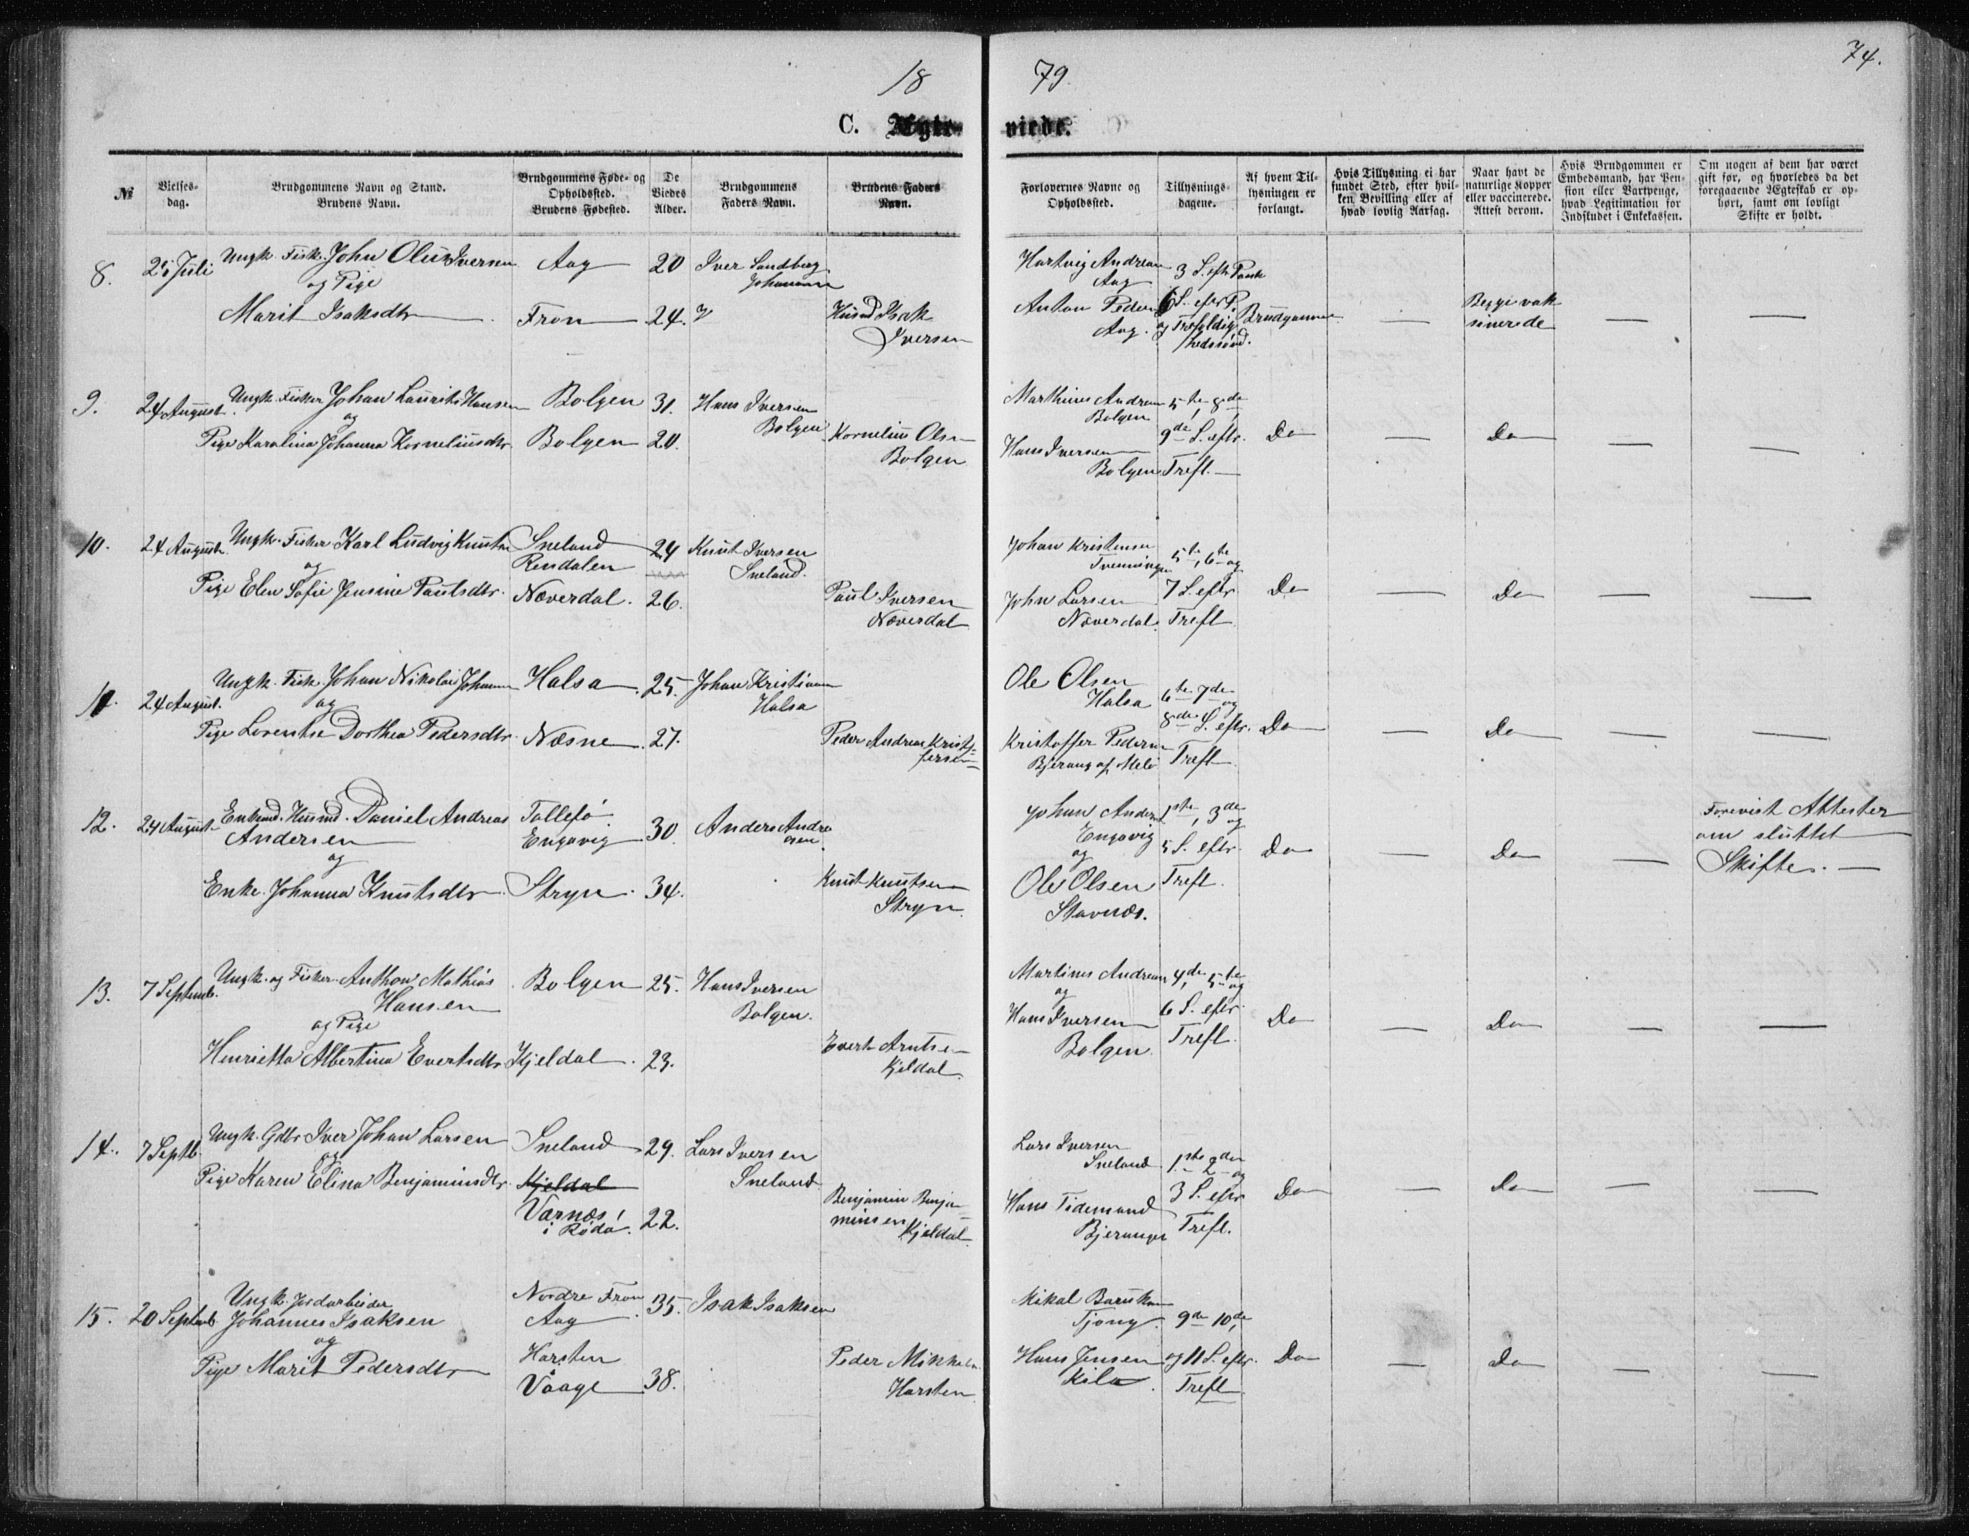 18 79. 74.
C. Ægte- viede.
№
Vielses-
dag.
Brudgommens Navn og Stand.
Brudens Navn.
Brudgommens Føde- og
Opholdssted.
Brudens Fødested.
De
Viedes
Alder.
Brudgommens
Faders Navn.
Brudens Faders
Navn.
Forlovernes Navne og
Opholdssted.
Tillysnings-
dagene.
Af hvem Til-
lysningen er
forlangt.
Hvis Tillysning ei har
fundet Sted, efter hvil-
ken Bevilling eller af
hvad lovlig Aarsag.
Naar havt de
naturlige Kopper
eller vaccinerede.
Attest derom.
Hvis Brudgommen er
Embedsmand, har Pen-
sion eller Vartpenge,
hvad Legitimation for
Indskudet i Enkekassen.
Om nogen af dem har været
gift før, og hvorledes da det
foregaaende Ægteskab er op-
hørt, samt om lovligt
Skifte er holdt.
8. Juli Ungk. Fisk. John Olus Iversen Aag 20 Iver Sandberg
Johansen
og Pige
Marit Isaksdtr Fron 24. Husmd Isak
Iversen
Hartvig Andreasen
Aag
3 S. eftr Paask
Anton Pedersen
Aag.
6 S. eftr P.
og Trefoldig
hedssønd.
Brudgommen
—
Begge vak
sinerede
— —
9. 24 August. Ungk. Fisker Johan Laurits Hansen Bolgen 31. Hans Iversen
Bolgen
og
Pige Karalina Johanna Korneliusdtr. Bolgen 20. Kornelius Olsen
Bolgen
Marthinus Andreasen
Bolgen
5te, 8de,
Hans Iversen
Bolgen
9de S. eftr.
Trefl.
Do — Do — —
10. 24 August. Ungk. Fisker Karl Ludvig Knutsen Sneland
Rendalen
24 Knut Iversen
Sneland.
og
Pige Elen Sofie Jensine Paulsdtr. Næverdal. 26. Paul Iversen
Næverdal
Johan Kristensen
Tvenningen
5te, 6te og
John Larsen
Næverdal.
7 S. eftr
Trefl.
Do — Do — —
11. 24 August. Ungk. Fisk. Johan Nikolai Johansen Halsa 25. Johan Kristiansen
Halsa
og
Pige Lorentse Dorthea Pedersdtr. Næsne 27. Peder Andreas Kristof-
fersen
Ole Olsen
Halsa
6te 7de og
8de S. eftr.
Kristoffer Pedersen
Bjerang af Melø
Trefl.
Do — Do — —
12. 24 August. Enkemd. Husmd. Daniel Andreas
Andersen
Tollefø.
Engavig
30. Anders Andre
asen.
og
Enke Johanna Knutsdtr. Stryn. 34. Knut Knutsen
Stryn.
Johan Andersen
Engavig
og
Ole Olsen
Stavnæs.
1ste, 3de og
5 S. eftr.
Trefl.
Do — Do —
Forevist Attester
om sluttet
Skifte. —
13. 7 Septemb. Ungk. og Fisker Anthon Mathias
Hansen
Bolgen 25. Hans Iversen
Bolgen.
og Pige
Henrietta Albertina Evertsdtr Kjeldal. 23. Evert Arntsen
Kjeldal.
Martinus Andreasen
og
Hans Iversen
Bolgen.
4de, 5te og
6 S. eftr.
Trefl.
Do — Do — —
14. 7 Septb. Ungk. Gdbr Iver Johan Larsen Sneland 29. Lars Iversen
Sneland
og
Pige Karen Elina Benjaminsdtr. Kjeldal
Værnæs!
i Rødø.
22. Benjamin Benja-
minsen
Kjeldal.
Lars Iversen
Sneland
Hans Tidemand
Bjerangen
1ste 2den og
3 S. eftr
Trefl.
Do — Do — —
15. 20 Septemb Ungk. Jordarbeider
Johannes Isaksen
Nordre Fron
Aag
35. Isak Isaksen
og
Pige Marit Pedersdtr Harsten
Vaage
38. Peder Mikkelsen
Harsten
Mikal Baruksen
Tjong.
Hans Jensen
Kila.
9de 10de,
og 11 S. eftr.
Trefl.
Do — Do — —